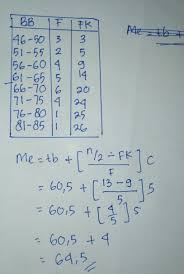 BB F FK
46-50 3 3
51-55 2 5
56-60 4 9
61-65 5 14
66-70 6 20
71-75 4 24
76-80 1 25
81-85 1 26
Me = tb +
Me = tb + [ n/2 - FK / F ] C
= 60,5 + [ 13-9 / 5 ] 5
= 60,5 + [ 4 / 5 ] 5
= 60,5 + 4
= 64,5